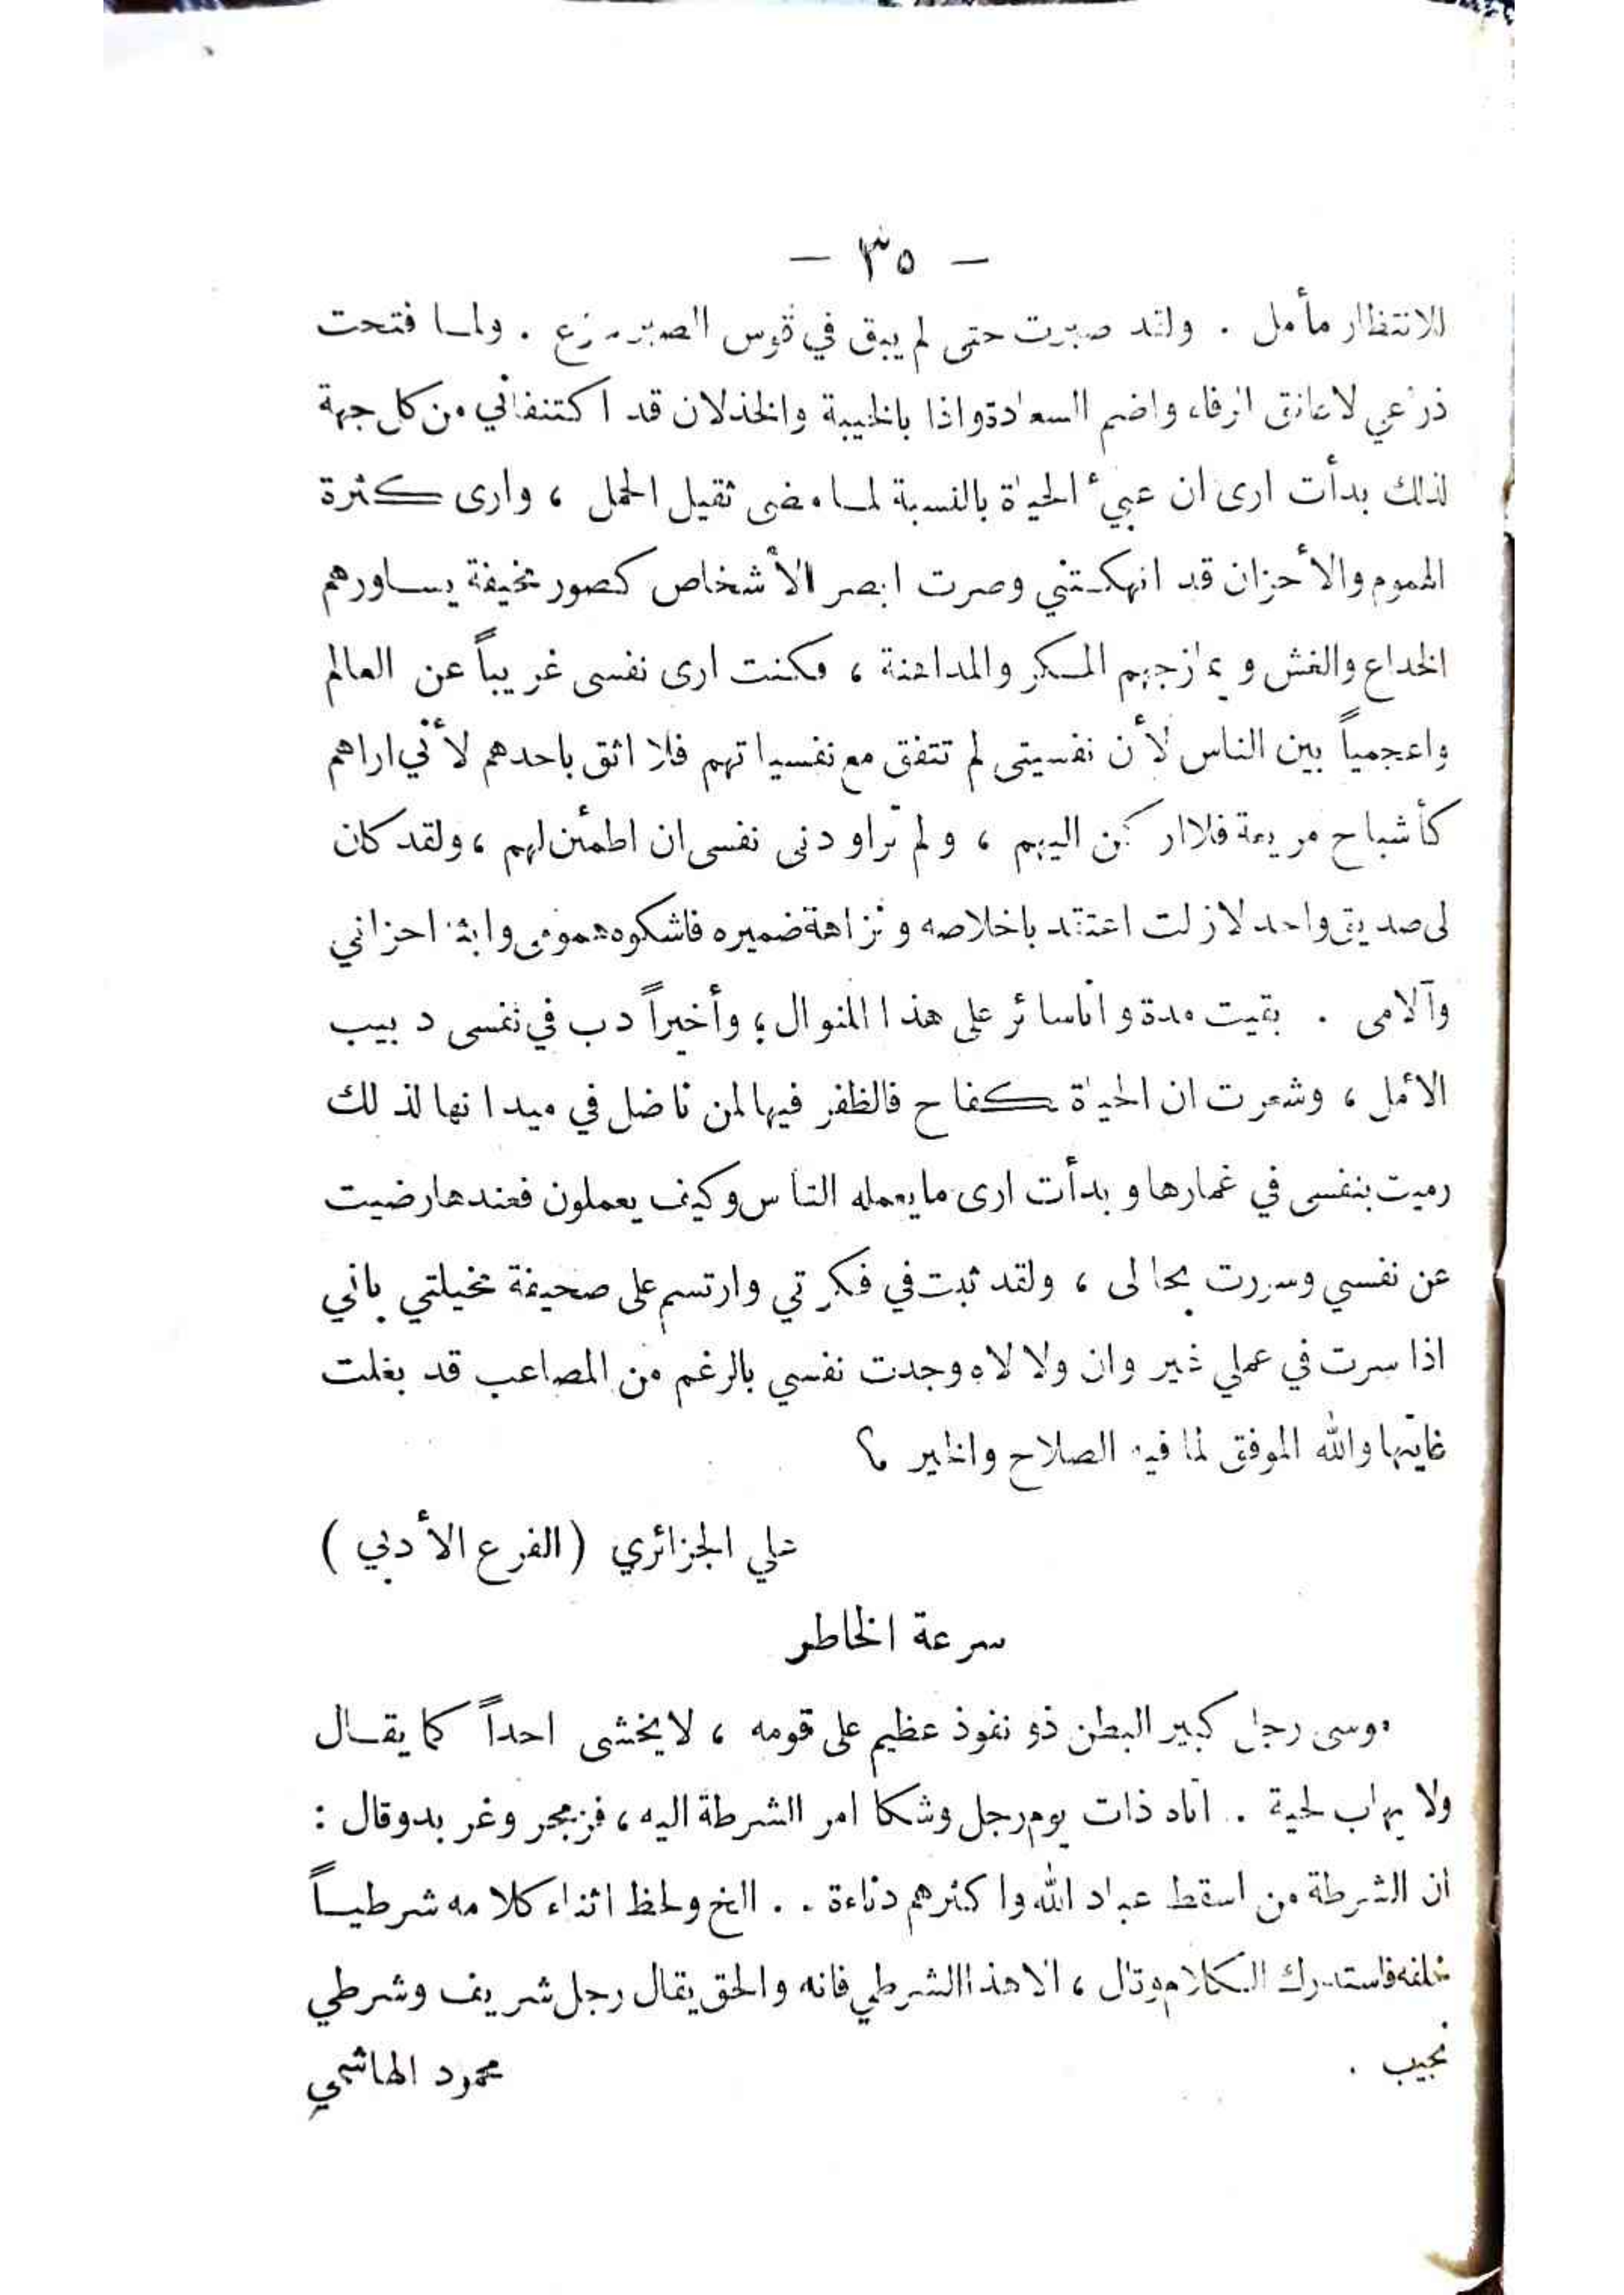 — ٣٥ —
للانتظار مأمل . ولقد صبرت حتى لم يبق في قوس الصبر منزع . ولما فتحت
ذرعي لاعانق الرفاء واضم السعادة واذا بالخيبة والخذلان قد اكتنفاني من كل جهة
لذلك بدأت ارى ان عبيء الحياة بالنسبة لما مضى ثقيل الحمل ، وارى كثرة
الهموم والأحزان قد انهكتني وصرت ابصر الأشخاص كصور مخيفة يساورهم
الخداع والغش ويمازجهم المكر والمداهنة ، فكنت ارى نفسى غريباً عن العالم
واعجمياً بين الناس لأن نفسيتى لم تتفق مع نفسياتهم فلا اثق باحدهم لأني اراهم
كأشباح مريعة فلا اركن اليهم ، ولم تراودنى نفسى ان اطمئن لهم ، ولقد كان
لى صديق واحد لازلت اعتقد باخلاصه ونزاهة ضميره فاشكوه همومى وابثه احزاني
وآلامى . بقيت مدة وانا سائر على هذا المنوال ؛ وأخيراً دب في نفسى دبيب
الأمل ، وشعرت ان الحياة كفاح فالظفر فيها لمن ناضل في ميدانها لذلك
رميت بنفسى في غمارها وبدأت ارى ما يعمله الناس وكيف يعملون فعندها رضيت
عن نفسي وسررت بحالى ، ولقد ثبت في فكرتي وارتسم على صحيفة مخيلتي باني
اذا سرت في عملي غير وان ولا لاه وجدت نفسي بالرغم من المصاعب قد بغلت
غايتها والله الموفق لما فيه الصلاح والخير ؟
علي الجزائري (الفرع الأدبي)
سرعة الخاطر
موسى رجل كبير البطن ذو نفوذ عظيم على قومه ، لا يخشى احداً كما يقال
ولا يهاب لحية . اتاه ذات يوم رجل وشكا امر الشرطة اليه ، فزمجر وعربد وقال :
ان الشرطة من اسقط عباد الله واكثرهم دناءة . . الخ ولحظ اثناء كلامه شرطياً
خلفه فاستدرك الكلام وقال ، الا هذا الشرطي فانه والحق يقال رجل شريف وشرطي
نجيب .
محمود الهاشمي